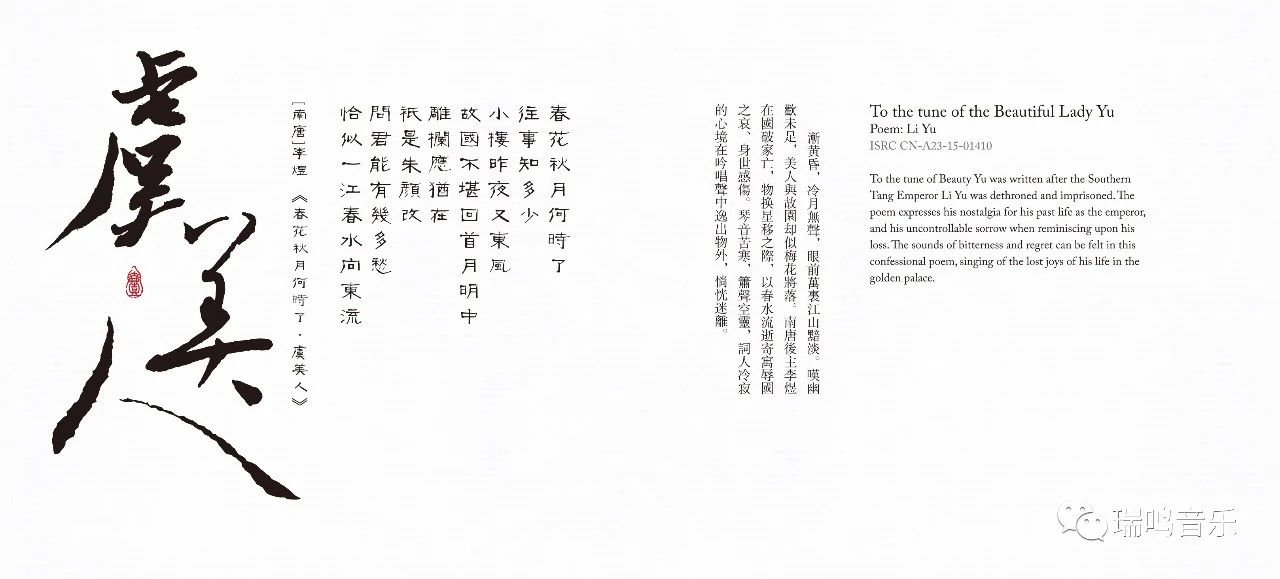 虞美人
[南唐]李煜 《春花秋月何時了·虞美人》
春花秋月何時了
往事知多少
小樓昨夜又東風
故國不堪回首月明中
雕欄應猶在
祇是朱顏改
問君能有幾多愁
恰似一江春水向東流
漸黃昏，冷月無聲，眼前萬裏江山黯淡。嘆幽
歡未足，美人與故園却似梅花將落。南唐後主李煜
在國破家亡，物換星移之際，以春水流逝寄寓辱國
之哀、身世感傷。琴音苦寒，簫聲空靈，詞人冷寂
的心境在吟唱聲中逸出物外，惝恍迷離。
To the tune of the Beautiful Lady Yu
Poem: Li Yu
ISRC CN-A23-15-01410
To the tune of Beauty Yu was written after the Southern
Tang Emperor Li Yu was dethroned and imprisoned. The
poem expresses his nostalgia for his past life as the emperor,
and his uncontrollable sorrow when reminiscing upon his
loss. The sounds of bitterness and regret can be felt in this
confessional poem, singing of the lost joys of his life in the
golden palace.
瑞鸣音乐